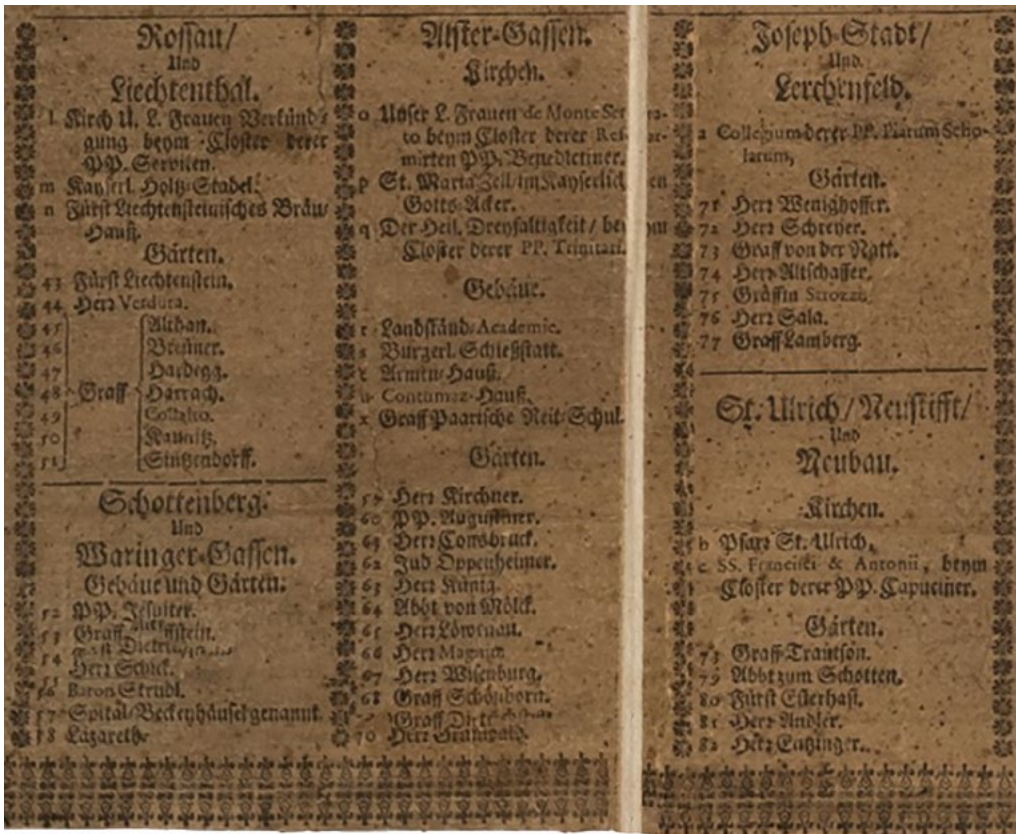 Rossau/
Und
Liechtenthal.
l Kirch U. L. Frauen Verkünd-
gung beym Closter derer
PP. Serviten.
m Kayserl. Holtz-Stadel.
n Fürst Liechtensteinisches Bräu-
Hauß.
Gärten.
43 Fürst Liechtenstein.
44 Herr Verdura.
45 Althan.
46 Breüner.
47 Hardegg.
48 Graff Harrach.
49 Collalto.
50 Kaunitz.
51 Sintzendorff.
Schottenberg:
Und
Waringer-Gassen.
Gebäue und Gärten:
52 PP. Jesuiter.
53 Graff
54
Herr Schick.
56 Baron Strudl.
57 Spital/Beckenhäusel genannt
58 Lazareth
Alster-Gassen.
Kirchen.
o Unser L. Frauen de Monte
to beym Closter derer
mirten PP. Benedictiner.
p St. Maria Zell/im Kayserlichen
Gotts-Acker.
q Der Heil. Dreyfaltigkeit/ beym
Closter derer PP. Trinitari.
Gebäue.
r Landständ-Academie.
s Burgerl. Schießstatt.
t Armen-Hauß.
u Contumaz-Hauß.
x Graff Paarische Reit-Schul.
Gärten.
59 Herr Kirchner.
60 PP. Augustiner.
61 Herr Consbruck.
62 Jud Oppenheimer.
63 Herr Künig.
64 Abbt von Mölck.
65 Herr Löwenau.
66 Herr Magnin
67 Herr Wisenburg.
68 Graff Schönborn.
Graff
70 Herr
Joseph-Stadt/
Und
Lerchenfeld.
a Collegium derer PP. Piarum Scho-
larum,
Gärten.
71 Herr Wenighoffer.
72 Herr Schreyer.
73 Graff von der Natt.
74 Herr Altschaffer.
75 Gräffin Strozzi.
76 Herr Sala.
77 Graff Lamberg.
St. Ulrich/Neustifft/
Und
Neubau.
Kirchen.
b Pfarr St. Ulrich.
c SS. Francisci & Antonii, beym
Closter derer PP. Capuciner.
Gärten.
73 Graff Trautson.
79 Abbt zum Schotten.
80 Fürst Esterhasi.
81 Herr Andler.
82 Herr Entzinger.